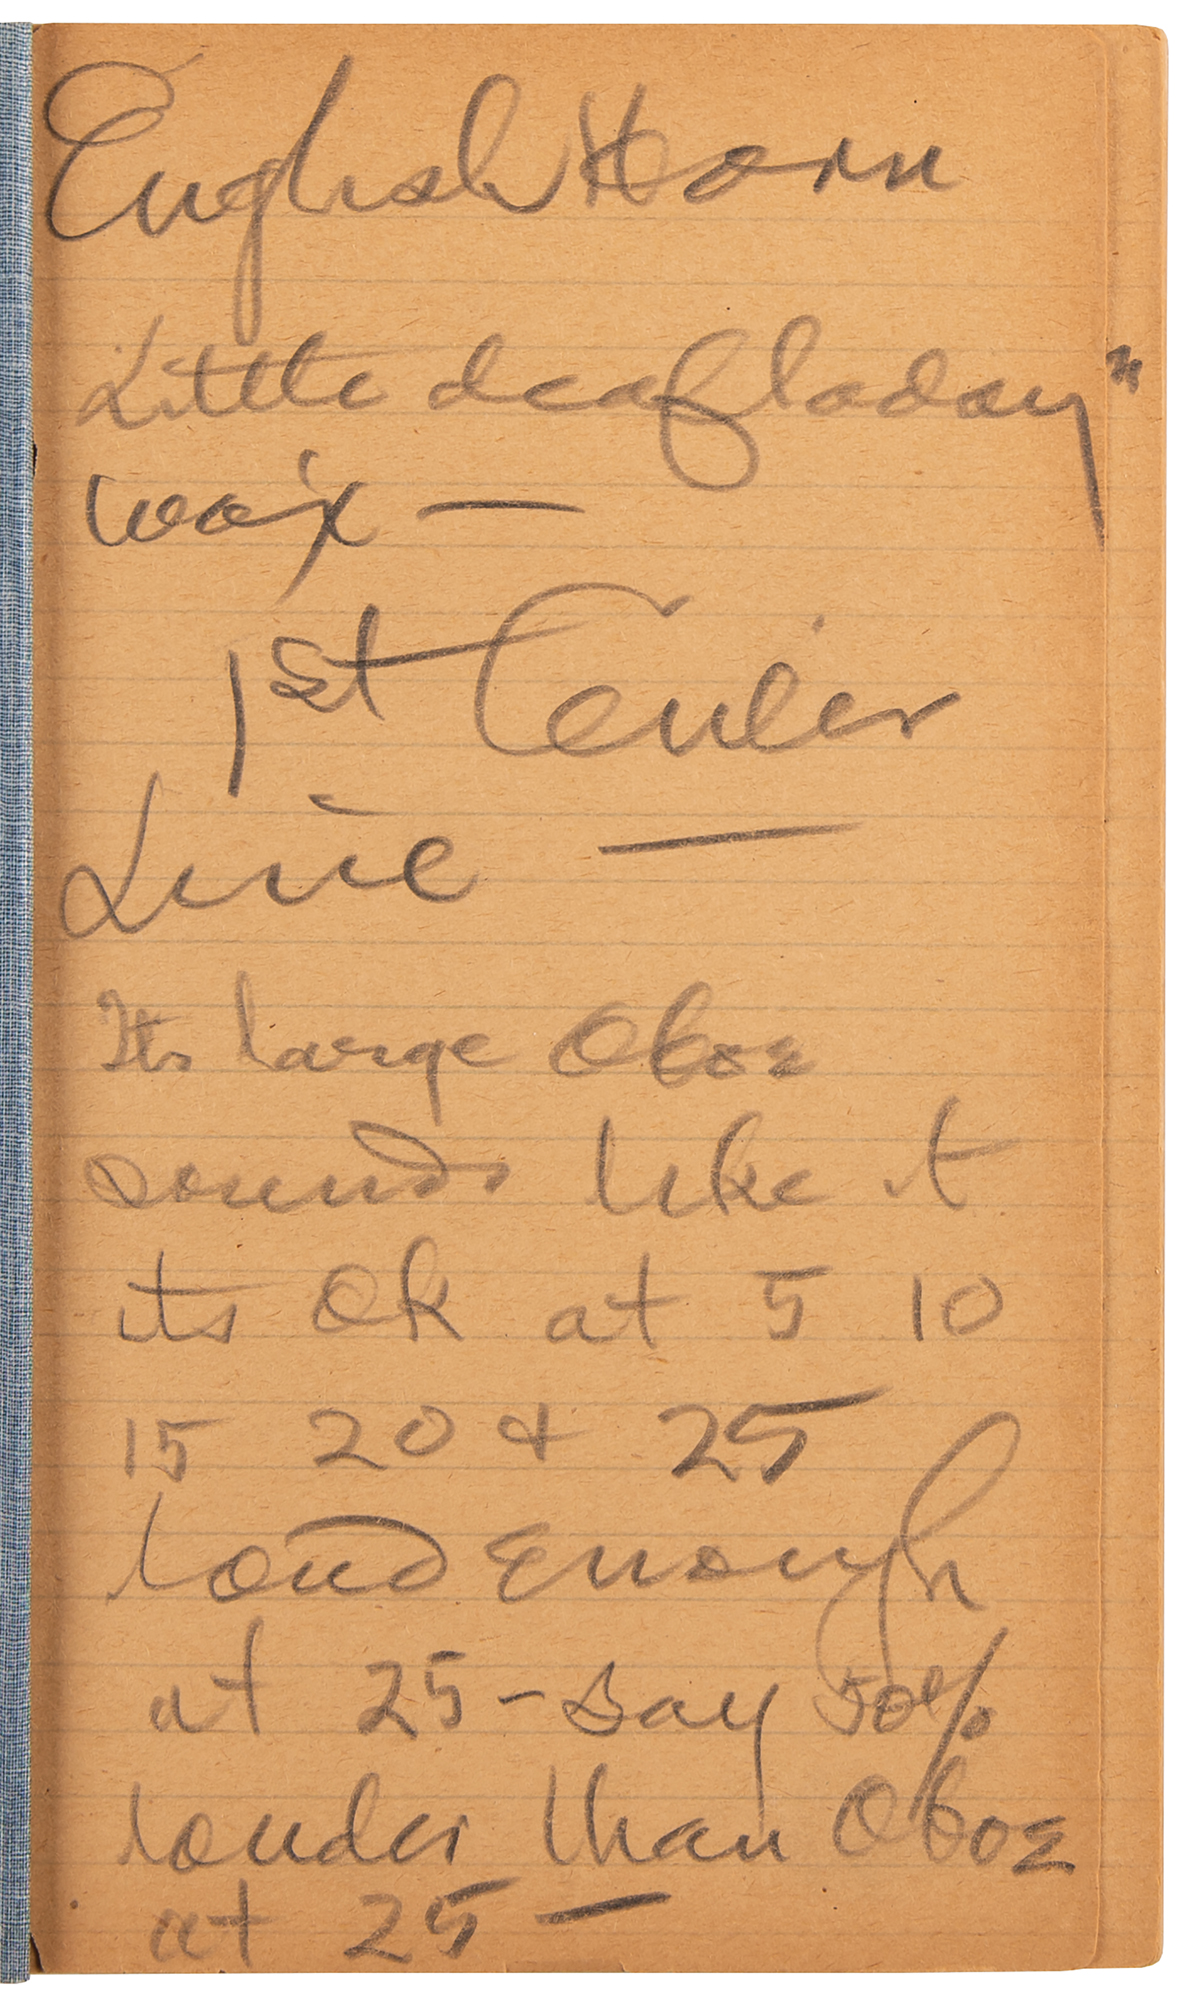 English Horn
Little deaf today "
wax —
1st Center
Line —
Its large Oboe
sounds like it
its Ok at 5 10
15 20 & 25
loud Enough
at 25 - say 50%
louder than Oboe
at 25 —